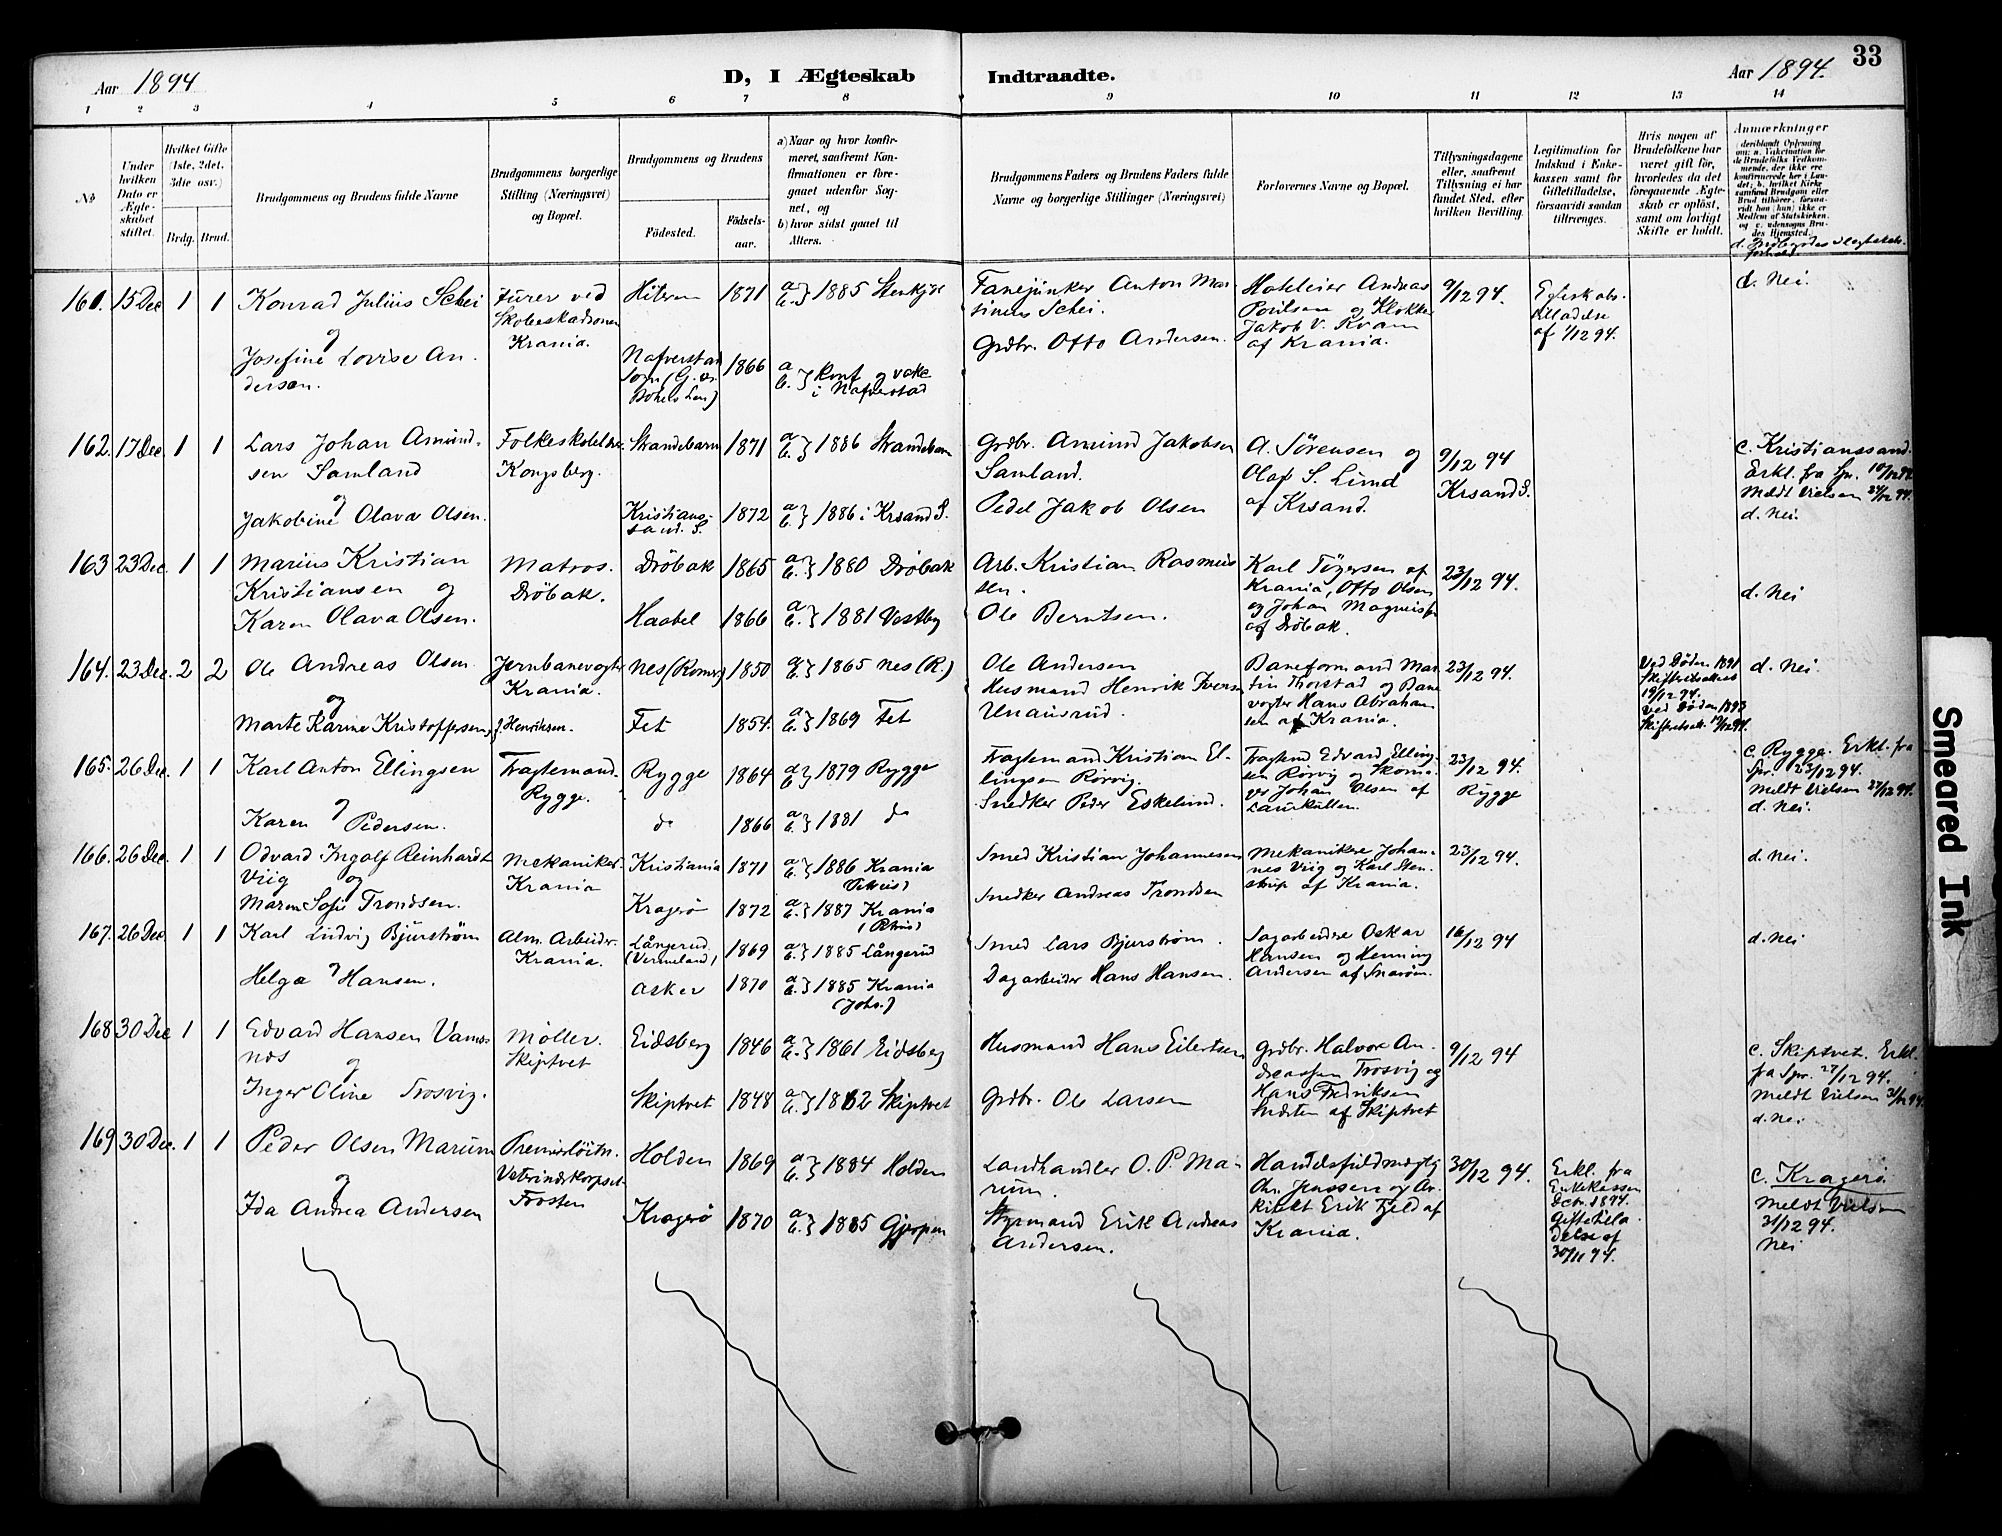 33
Aar 1894
D, I Ægteskab
Indtraadte.
Aar 1894.
1 2 3 4 5 6 7 8 9 10 11 12 13 14
No
Under hvilken Dato er Ægteskabet stiftet.
Hvilket Gifte (1ste, 2det, 3die osv.)
Brdg. Brud.
Brudgommens og Brudens fulde Navne
Brudgommens borgerlige Stilling (Næringsvei) og Bopæl.
Brudgommens og Brudens
Fødested.
Fødselsaar.
a) Naar og hvor konfirmeret, saafremt Konfirmationen er foregaaet udenfor Sognet, og
b) hvor sidst gaaet til Alters.
Brudgommens Faders og Brudens Faders fulde Navne og borgerlige Stillinger (Næringsvei)
Forlovernes Navne og Bopæl.
Tillysningsdagene eller, saafremt Tillysning ei har fundet Sted, efter hvilken Bevilling.
Legitimation for Indskud i Enkekassen samt for Giftetilladelse, forsaavidt saadan tiltrænges.
Hvis nogen af Brudefolkene har været gift før, hvorledes da det foregaaende Ægteskab er opløst, samt om lovligt Skifte er holdt.
Anmærkninger
161. 15 Dec 1 1 Konrad Julius Schei
og
Josefine Lovise Andersen.
Furer ved Skoleeskadronen Krania.
Hiteren 1871 a b } 1885 Stenkjær
Nafverstad Sogn 1866 a b. } Konf og vakc i Nafverstad
Fanejunker Anton Marsinus Schei.
Grdbr. Otto Andersen.
Hoteleier Andreas Poulsen og Klokker Jakob V. Kvam af Krania.
9/12 94.
af 1/12 94.
d. Nei.
162. 17 Dec 1 1 Lars Johan Amundsen Samland
og
Jakobine Olava Olsen.
Kongsberg.
Strandebarm 1871 a b } 1886 Strandebarm
Kristianssand S. 1872 a b } 1886 i Krsand S.
Grdbr. Amund Jakobsen Samland.
Pedel Jakob Olsen
A. Sørensen og Olaf S. Lund af Krsand.
9/12 94 Krsand S.
c. Kristianssand. Erkl. fra Spr.
Meldt Vielsen 24/12 94.
d. Nei.
163 23 Dec. 1 1 Marius Kristian Kristiansen og
Karen Olava Olsen.
Matros. Dröbak.
Dröbak 1865 a b. } 1880 Dröbak
Haabel 1866 a b. } 1881 Vestby
Arb. Kristian Rasmussen.
Ole Berntsen.
Karl Tögersen af Krania, Otto Olsen og Johan af Dröbak.
23/12 94.
d. Nei
164. 23 Dec. 2 2 Ole Andreas Olsen
og
Marte Karine Kristoffersen, f. Henriksen.
Jernbanevogter Krania.
Nes (Romr.) 1850 a b. } 1865 Nes (R.)
Fet 1854. a b. } 1869 Fet
Ole Andersen
Husmand Henrik Iversen Unausrud.
Baneformand Martin Thorstad og Banevogter Hans Abrahamsen af Krania.
23/12 94.
Ved Döden 1891 Skifteretsattest 19/12 94.
Ved Döden 1893
d. Nei
165. 26 Dec. 1 1 Karl Anton Ellingsen
og
Karen Pedersen.
Fragtemand. Rygge.
Rygge 1864 a b } 1879 Rygge
do 1866 a b. } 1881 do
Fragtemand Kristian Ellingsen Rörvig.
Snedker Peder Eskelund.
Fragtmd Edvard Ellingsen Rörvig og Skomager Johan Olsen af Larkullen.
23/12 94. Rygge
c. Rygge. Erkl. fra Spr. 23/12 94.
Meldt Vielsen 27/12 94.
d. Nei.
166. 26 Dec. 1 1 Odvard Ingolf Reinhardt Viig og
Maren Sofie Trondsen.
Mekaniker. Krania
Kristiania 1871 a b. } 1886 Krania (Petrus)
Kragerø 1872 a b. } 1887 Krania (Petrus)
Smed Kristian Johannesen
Snedker Andreas Trondsen
Mekanikere Johannes Viig og Karl Stenstrup af Krania.
23/12 94.
d. Nei.
167. 26 Dec 1 1 Karl Ludvig Bjurström
og
Helga Hansen.
Alm. Arbeider. Krania.
Långerud. (Vermeland) 1869 a b. } 1885 Långerud
Asker 1870 a b. } 1885 Krania (Johs.)
Smed Lars Bjurström.
Dagarbeider Hans Hansen.
Sagarbeidere Oskar Hansen og Henning Andersen af Snaröen.
16/12 94
d. Nei
168 30 Dec 1 1 Edvard Hansen Vamsnæs
og
Inger Oline Trosvig.
Möller. Skiptvet
Eidsberg 1846 a b. } 1861 Eidsberg
Skiptvet 1848 a b. } 1862 Skiptvet
Husmand Hans Eilertsen
Grdbr. Ole Larsen
Grdbr. Halvor Andreassen Trosvig og Hans Fredriksen af Skiptvet
9/12 94
c. Skiptvet. Erkl. fra Spr. 27/12 94.
Meldt Vielsen 31/12 94.
d. Nei
169 30 Dec. 1 1 Peder Olsen Marum
og
Ida Andrea Andersen
Premierlöitn. Veterinærkorpset Trosten
Holden 1869 a b. } 1884 Holden
Kragerö 1870 a b. } 1885 Gjerpen
Landhandler O. P. Marum.
Styrmand Erik Andreas Andersen.
Handelsfuldmægtig Chr. Jenssen og Arkitekt Erik Fjeld af Krania.
30/12 94.
Erkl. fra Enkekassen Dcbr. 1894. Giftetilladelse af 30/11 94.
c. Kragerö
Meldt Vielsen 31/12 94.
Nei
Smeared Ink